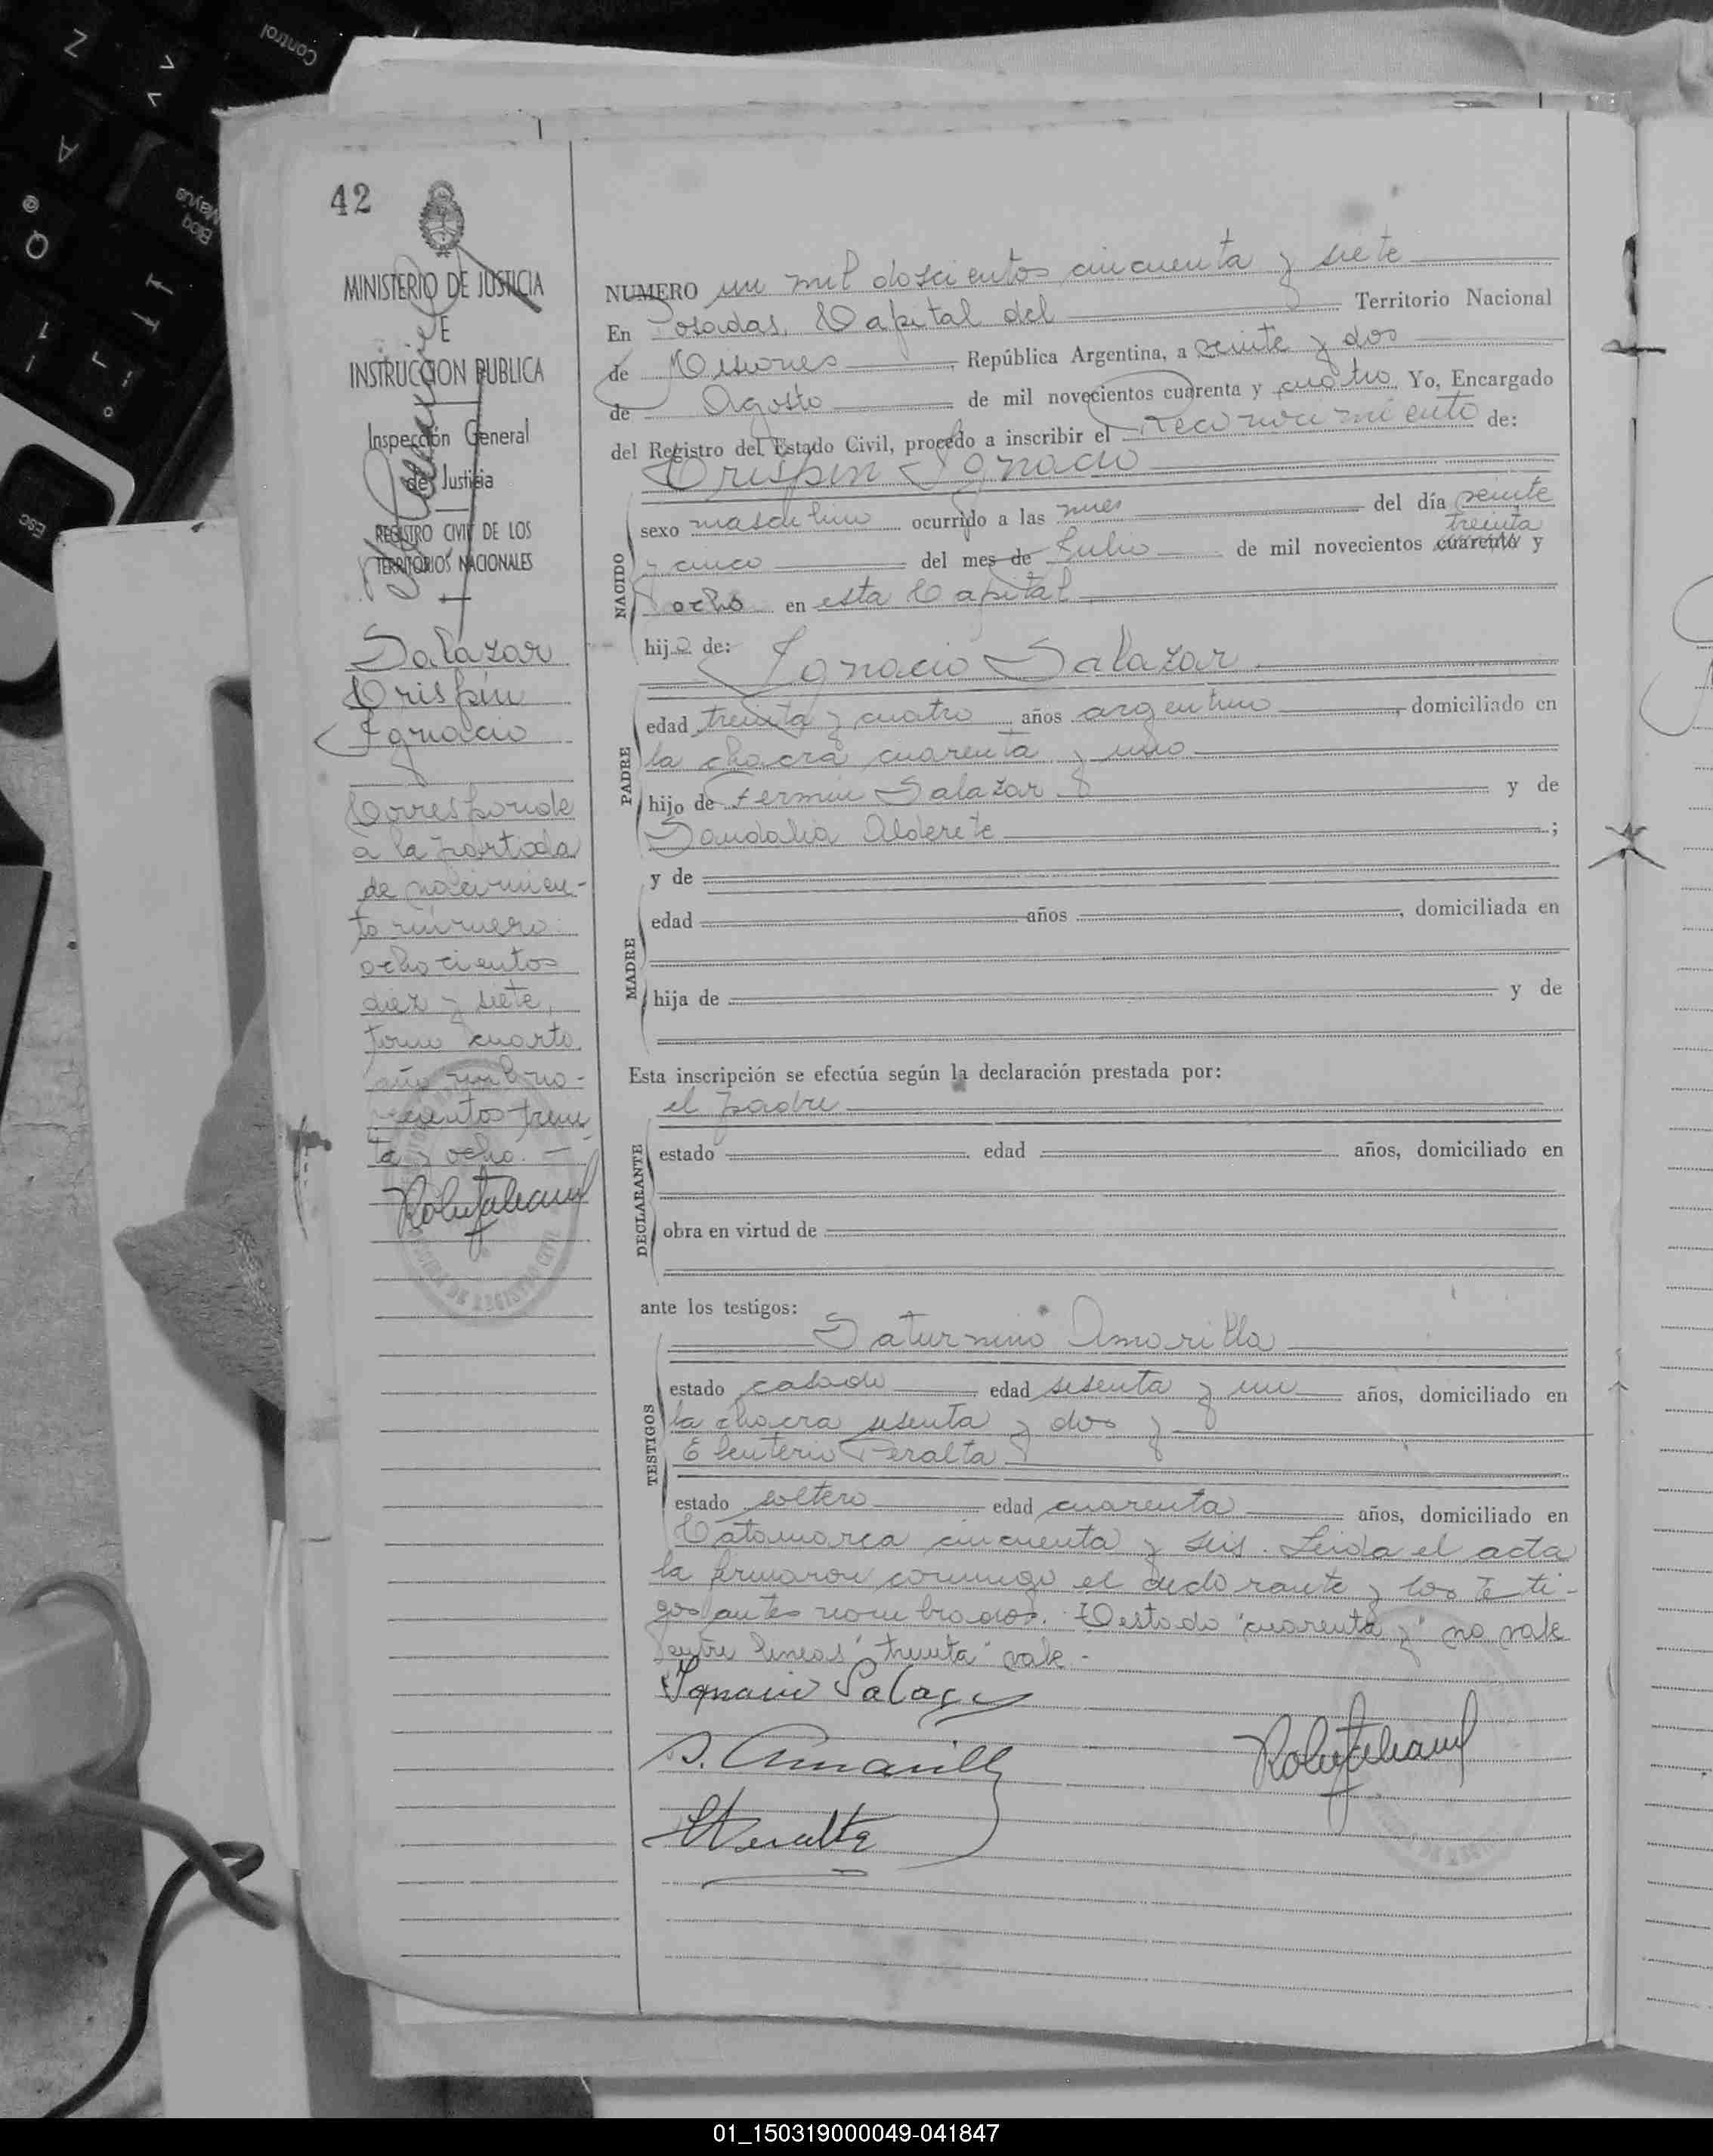 42
MINISTERIO DE JUSTICIA
E
INSTRUCCION PUBLICA
Inspección General
de Justicia
REGISTRO CIVIL DE LOS
TERRITORIOS NACIONALES
Salazar
Crispin
Ignacio
Corresponde
a la partida
de nacimien-
to número
ochocientos
diez y siete,
tomo cuarto
año mil no-
vecientos trein
ta y ocho. —
NUMERO un mil doscientos cincuenta y siete
En Posadas, Capital del Territorio Nacional
de Misiones, República Argentina, a veinte y dos
de Agosto de mil novecientos cuarenta y cuatro Yo, Encargado
del Registro del Estado Civil, procedo a inscribir el Reconocimiento de:
Crispin Ignacio
NACIDO
sexo masculino ocurrido a las del día veinte
treinta
y cinco del mes de Julio de mil novecientos cuarenta y
ocho en esta Capital
hijo de: Ignacio Salazar
PADRE
edad treinta y cuatro años argentino, domiciliado en
la chacra cuarenta y uno
hijo de Fermin Salazar y de
Sandalia Alderete;
MADRE
y de
edad años, domiciliada en
hija de y de
Esta inscripción se efectúa según la declaración prestada por:
el padre
DECLARANTE
estado edad años, domiciliado en
obra en virtud de
ante los testigos:
Saturnino Amarilla
TESTIGOS
estado casado edad sesenta y un años, domiciliado en
la chacra sesenta y dos y
Eleuterio Peralta
estado soltero edad cuarenta años, domiciliado en
Catamarca cincuenta y seis. Leida el acta
la firmaron conmigo el declarante y los testi-
gos antes nombrados. Testado "cuarenta y" no vale
entre lineas "treinta" vale -
Ignacio Salazar
S. Amarilla
EPeralta
01_150319000049-041847
Control
Bloq
Mayús
Esc
Z
A
Q
@